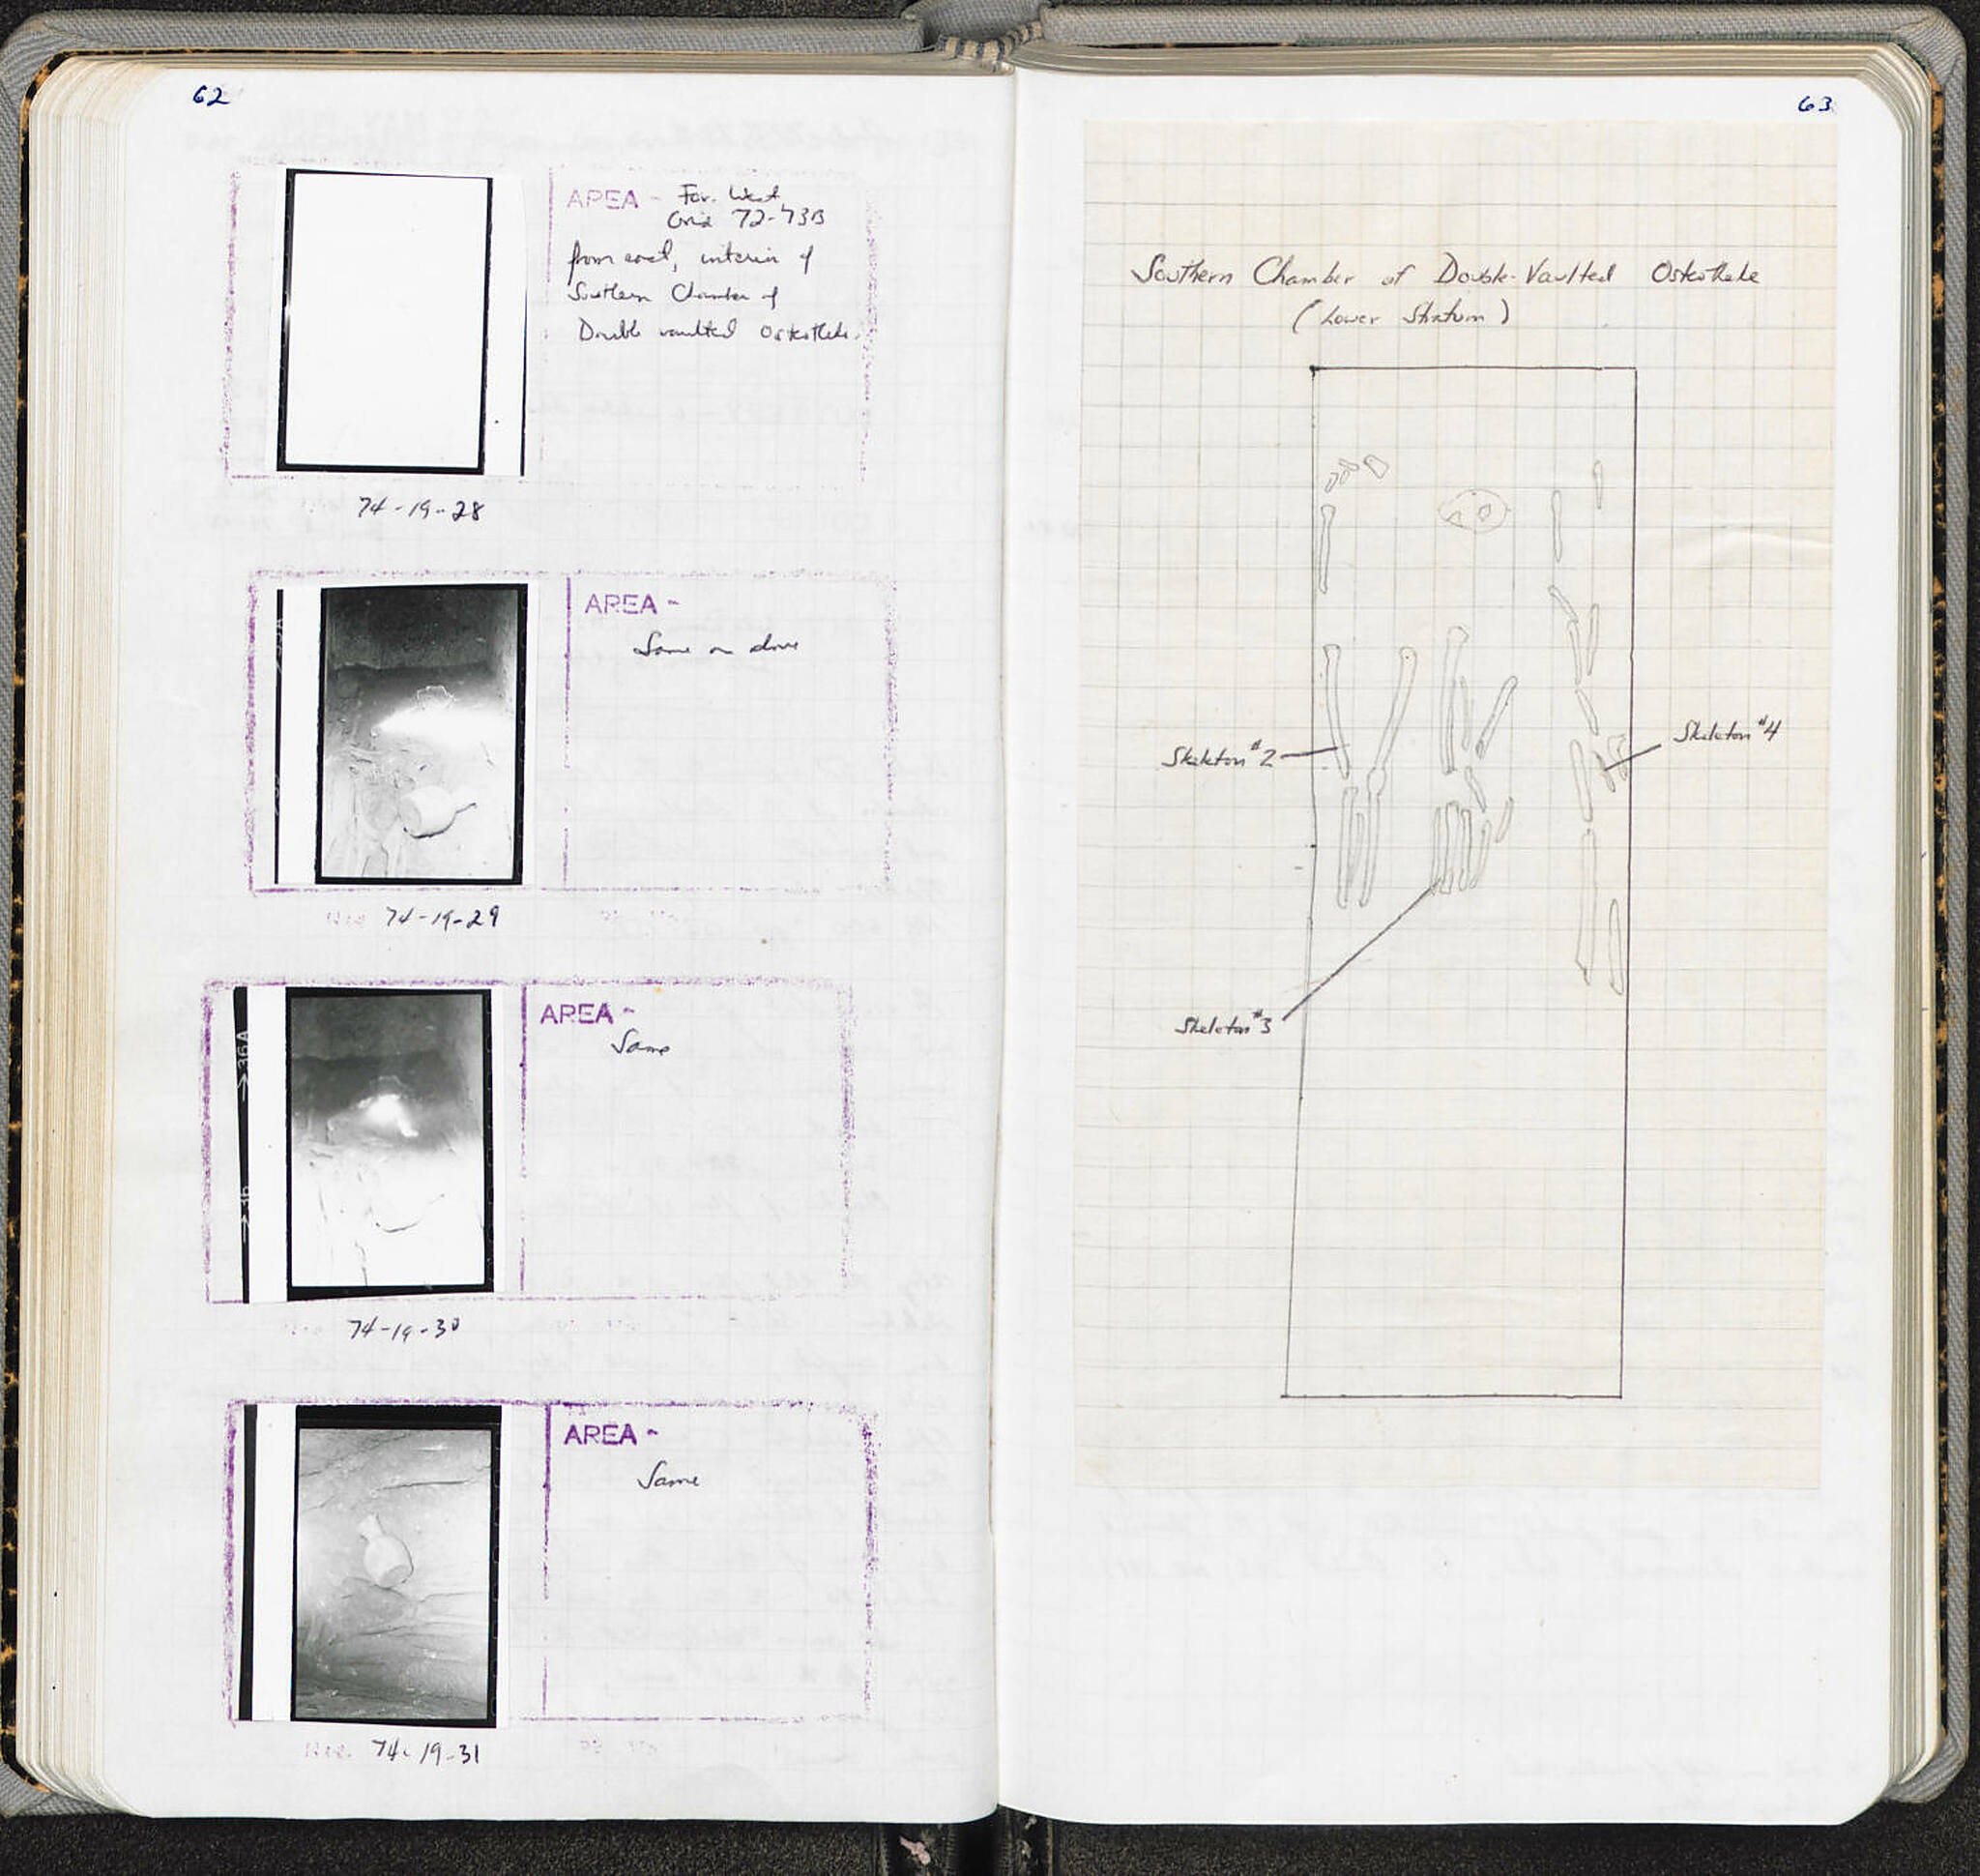 62
AREA - For. West
Grid 72-73B
from east, interior of
Southern Chamber of
Double vaulted Osteotheke.
74-19-28
AREA -
Same as above
74-19-29
→36A
→36
AREA -
Same
74-19-30
AREA -
Same
74-19-31
63
Southern Chamber of Double-Vaulted Osteotheke
(Lower Stratum)
Skeleton #2
Skeleton #4
Skeleton #3